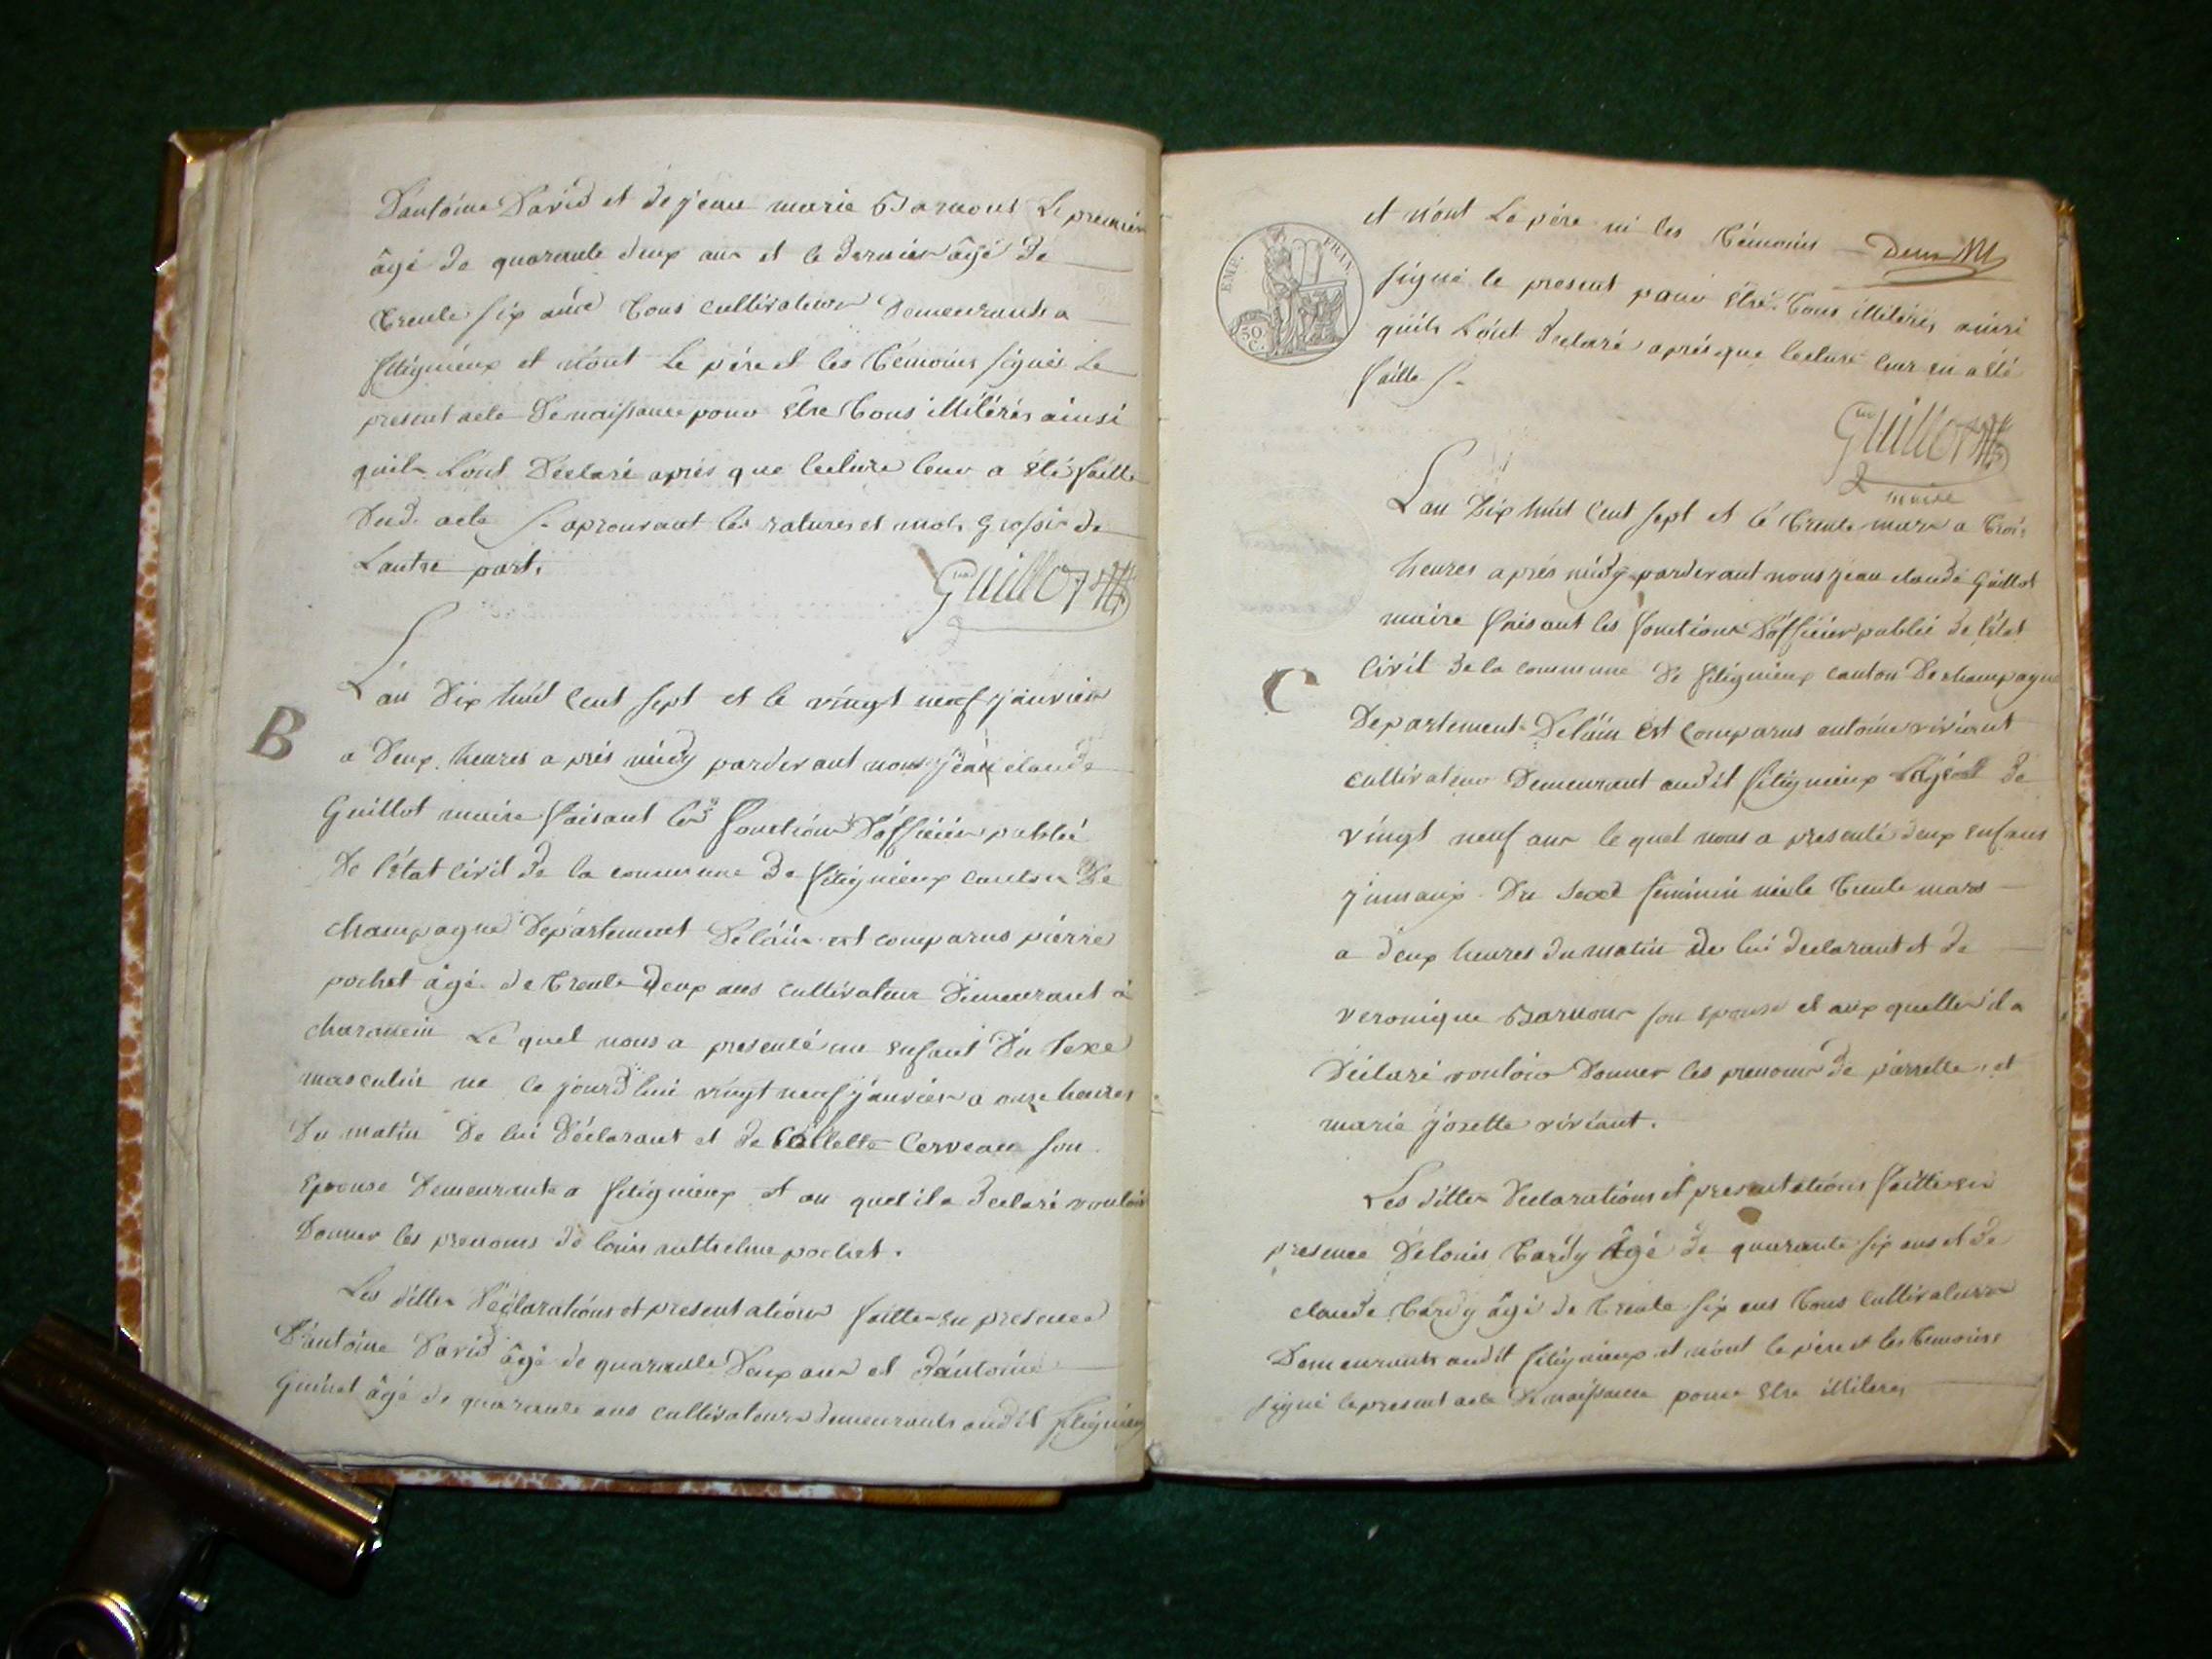 D'antoine David et de jean marie Barnout Le premier
âgé de quarante deux ans et le dernier âgé de
trente six ans tous cultivateurs Demeurants a
fllignieux et n'ont Le père et les témoins signé Le
present acte De naissance pour être tous illitérés ainsi
quils L'ont Déclaré après que lecture leur a été faitte
Dud. acte aprouvant les ratures et mots
Lautre part.
Guillot
B
L'an Dix huit cent sept et le vingt neuf janvier
a Deux heures après midy pardevant nous jean claude
Guillot maire faisant les fonctions D'officier public
De l'état civil de la commune de fitignieux canton De
champagne Département De l'ain est comparus pierre
pochet âgé de trente deux ans cultivateur Demeurant à
charancin Le quel nous a presenté un enfant Du sexe
masculin ne le jourdhui vingt neuf janvier a onze heures
Du matin De lui Déclarant et de Collette Cerveau son
Epouse Demeurants a fitignieux et au quel il a declaré vouloir
Donner les prenoms de louis pochet.
Les dittes Déclarations et presentations faittes en presence
D'antoine David âgé de quarante Deux ans et d'antoine
Guinet âgé de quarante ans cultivateurs demeurants audit fitignieux
EMP. FRAN.
50 C.
et n'ont Le père ni les témoins Deux
signé le present pour être tous illitérés ainsi
quils L'ont declaré après que lecture leur en a été
faitte
Guillot
maire
L'an Dix huit Cent sept et le trente mars a trois
heures après midy pardevant nous jean claude Guillot
maire faisant les fonctions D'officier public de l'état
C
civil de la commune De fitignieux canton De champagne
Departement De l'ain est comparus antoine viviant
cultivateur Demeurant audit fitignieux âgé de
vingt neuf ans le quel nous a presenté deux enfans
jumaux Du sexe feminin né le trente mars
a deux heures du matin de lui declarant et de
veronique Barnoux son epouse et aux quelles il a
Déclaré vouloir Donner les prenoms de pierrette et
marie josette viviant.
Les dittes Declarations et presentations faittes en
presence De louis tardy âgé de quarante six ans et de
claude tardy âgé de trente six ans tous cultivateurs
Demeurants audit fitignieux et n'ont le père et les temoins
signé le present acte De naissance pour etre illiteres